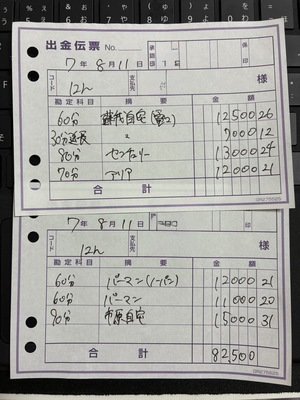 出金伝票 No.
承認印
係印
7年 8月 11日
コード
12h
支払先
様
勘定科目 摘要 金額
60分 自宅 12500 26
30分延長 〃 7000 12
90分 センチュリー 13000 24
70分 アリア 12000 21
合計
7年 8月 11日
コード
12h
支払先
様
勘定科目 摘要 金額
60分 パーマン(ノーパン) 12000 21
60分 パーマン 11000 20
90分 市原自宅 15000 31
合計 82,500